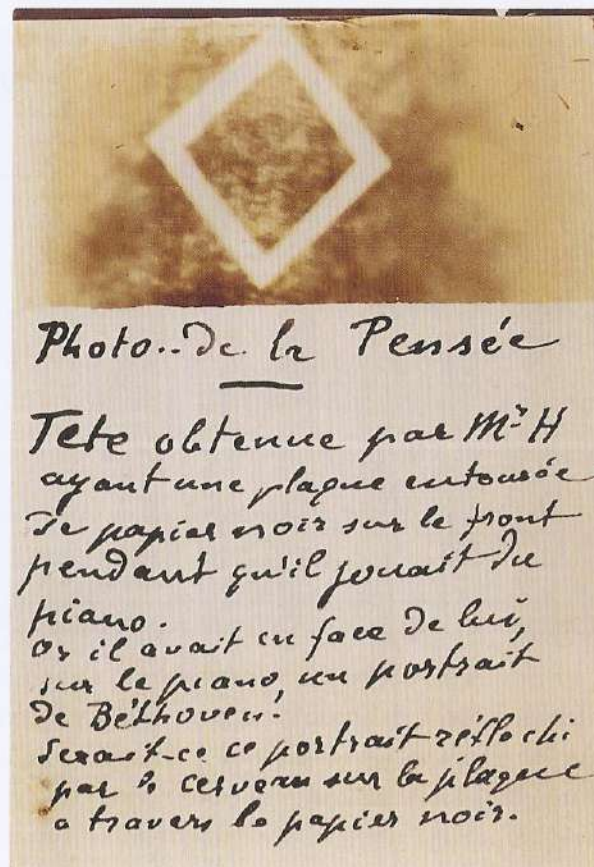 Photo..de la Pensée
Tete obtenue par Mr H
ayant une plaque entourée
de papier noir sur le front
pendant qu'il jouait du
piano.
Or il avait en face de lui,
sur le piano, un portrait
de Béthoven.
Serait-ce ce portrait réflechi
par le cerveau sur la plaque
a travers le papier noir.